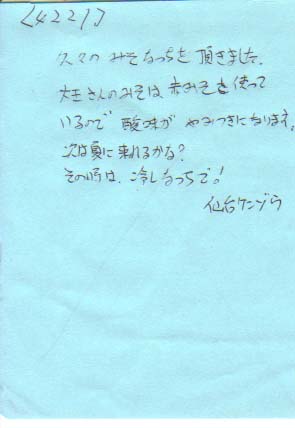 〈4221〉
久々の みそなっちを 頂きました。
大王さんのみそは 赤みそを使って
いるので 酸味が やみつきになります。
次は夏に来れるかな?
その時は、冷しなっちで!
仙台ケンゾウ